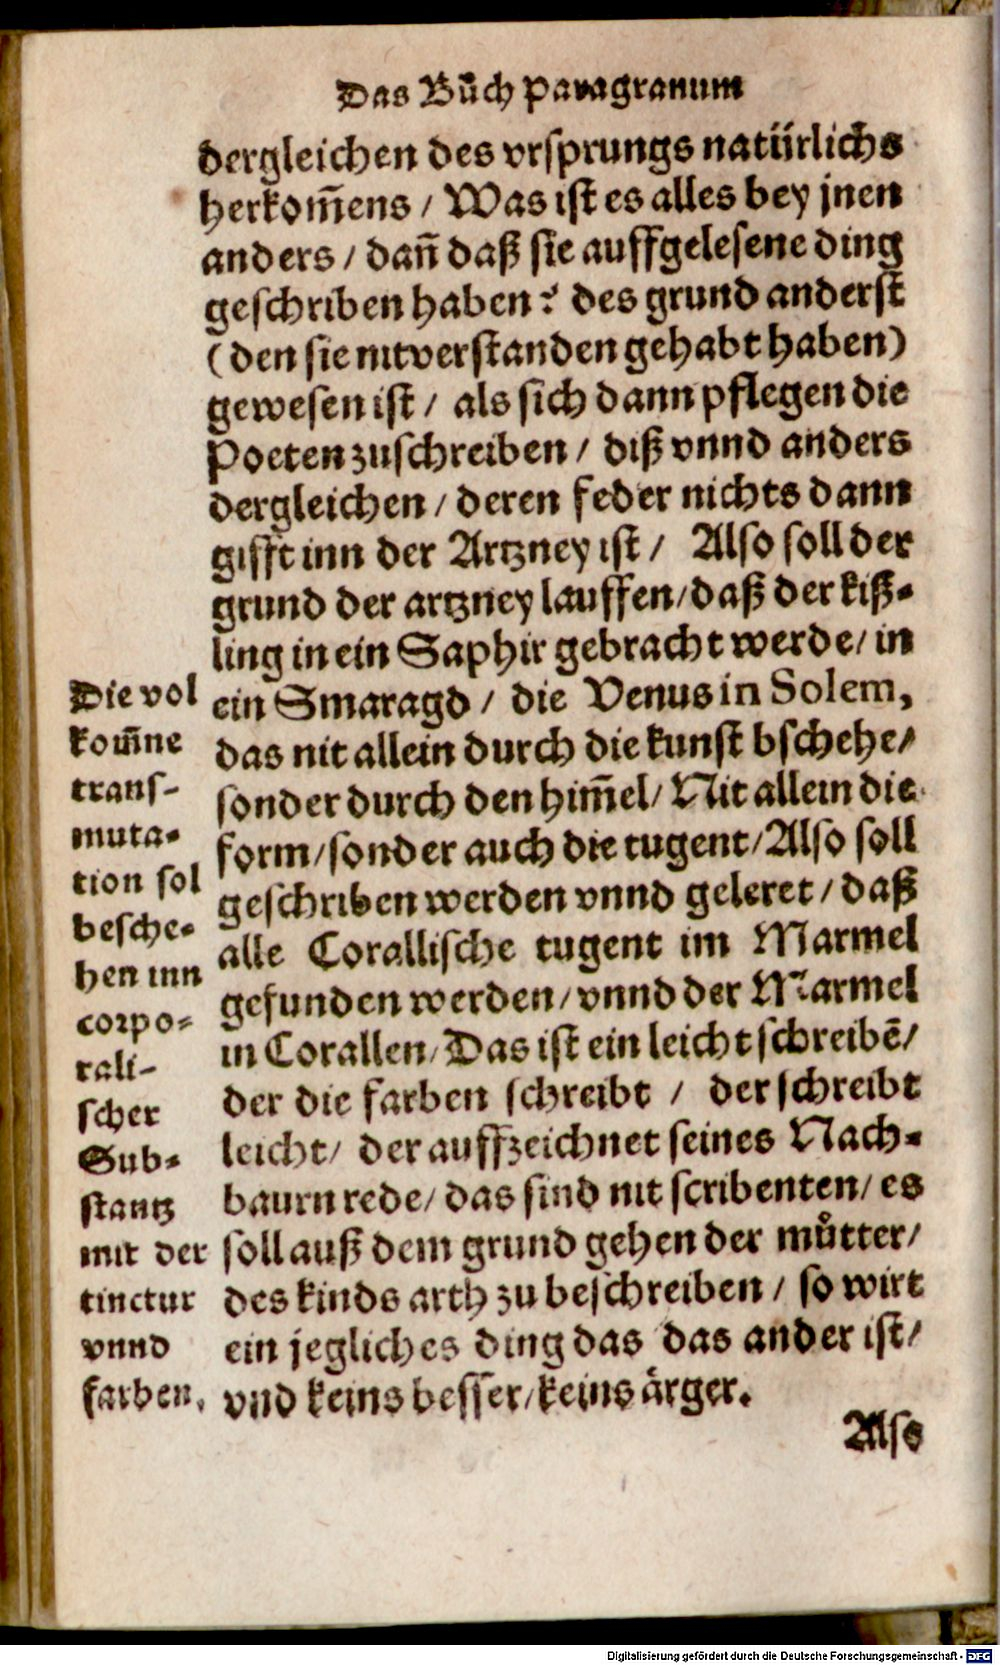 Das Bůch Paragranum
dergleichen des vrsprungs natürlichs
herkom̃ens / Was ist es alles bey jnen
anders / dañ daß sie auffgelesene ding
geschriben haben? des grund anderst
(den sie nit verstanden gehabt haben)
gewesen ist / als sich dann pflegen die
Poeten zuschreiben / diß vnnd anders
dergleichen / deren feder nichts dann
gifft inn der Artzney ist / Also soll der
grund der artzney lauffen / daß der kiß-
ling in ein Saphir gebracht werde / in
ein Smaragd / die Venus in Solem,
das nit allein durch die kunst bschehe /
sonder durch den him̃el / Nit allein die
form / sonder auch die tugent / Also soll
geschriben werden vnnd geleret / daß
alle Corallische tugent im Marmel
gefunden werden / vnnd der Marmel
in Corallen / Das ist ein leicht schreibẽ /
der die farben schreibt / der schreibt
leicht / der auffzeichnet seines Nach-
baurn rede / das sind nit scribenten / es
soll auß dem grund gehen der můtter /
des kinds arth zu beschreiben / so wirt
ein jegliches ding das das ander ist /
vnd keins besser / keins ärger.
Also
Die vol
kom̃ne
trans-
muta-
tion sol
besche-
hen inn
corpo-
rali-
scher
Sub-
stantz
mit der
tinctur
vnnd
farben.
Digitalisierung gefördert durch die Deutsche Forschungsgemeinschaft - DFG